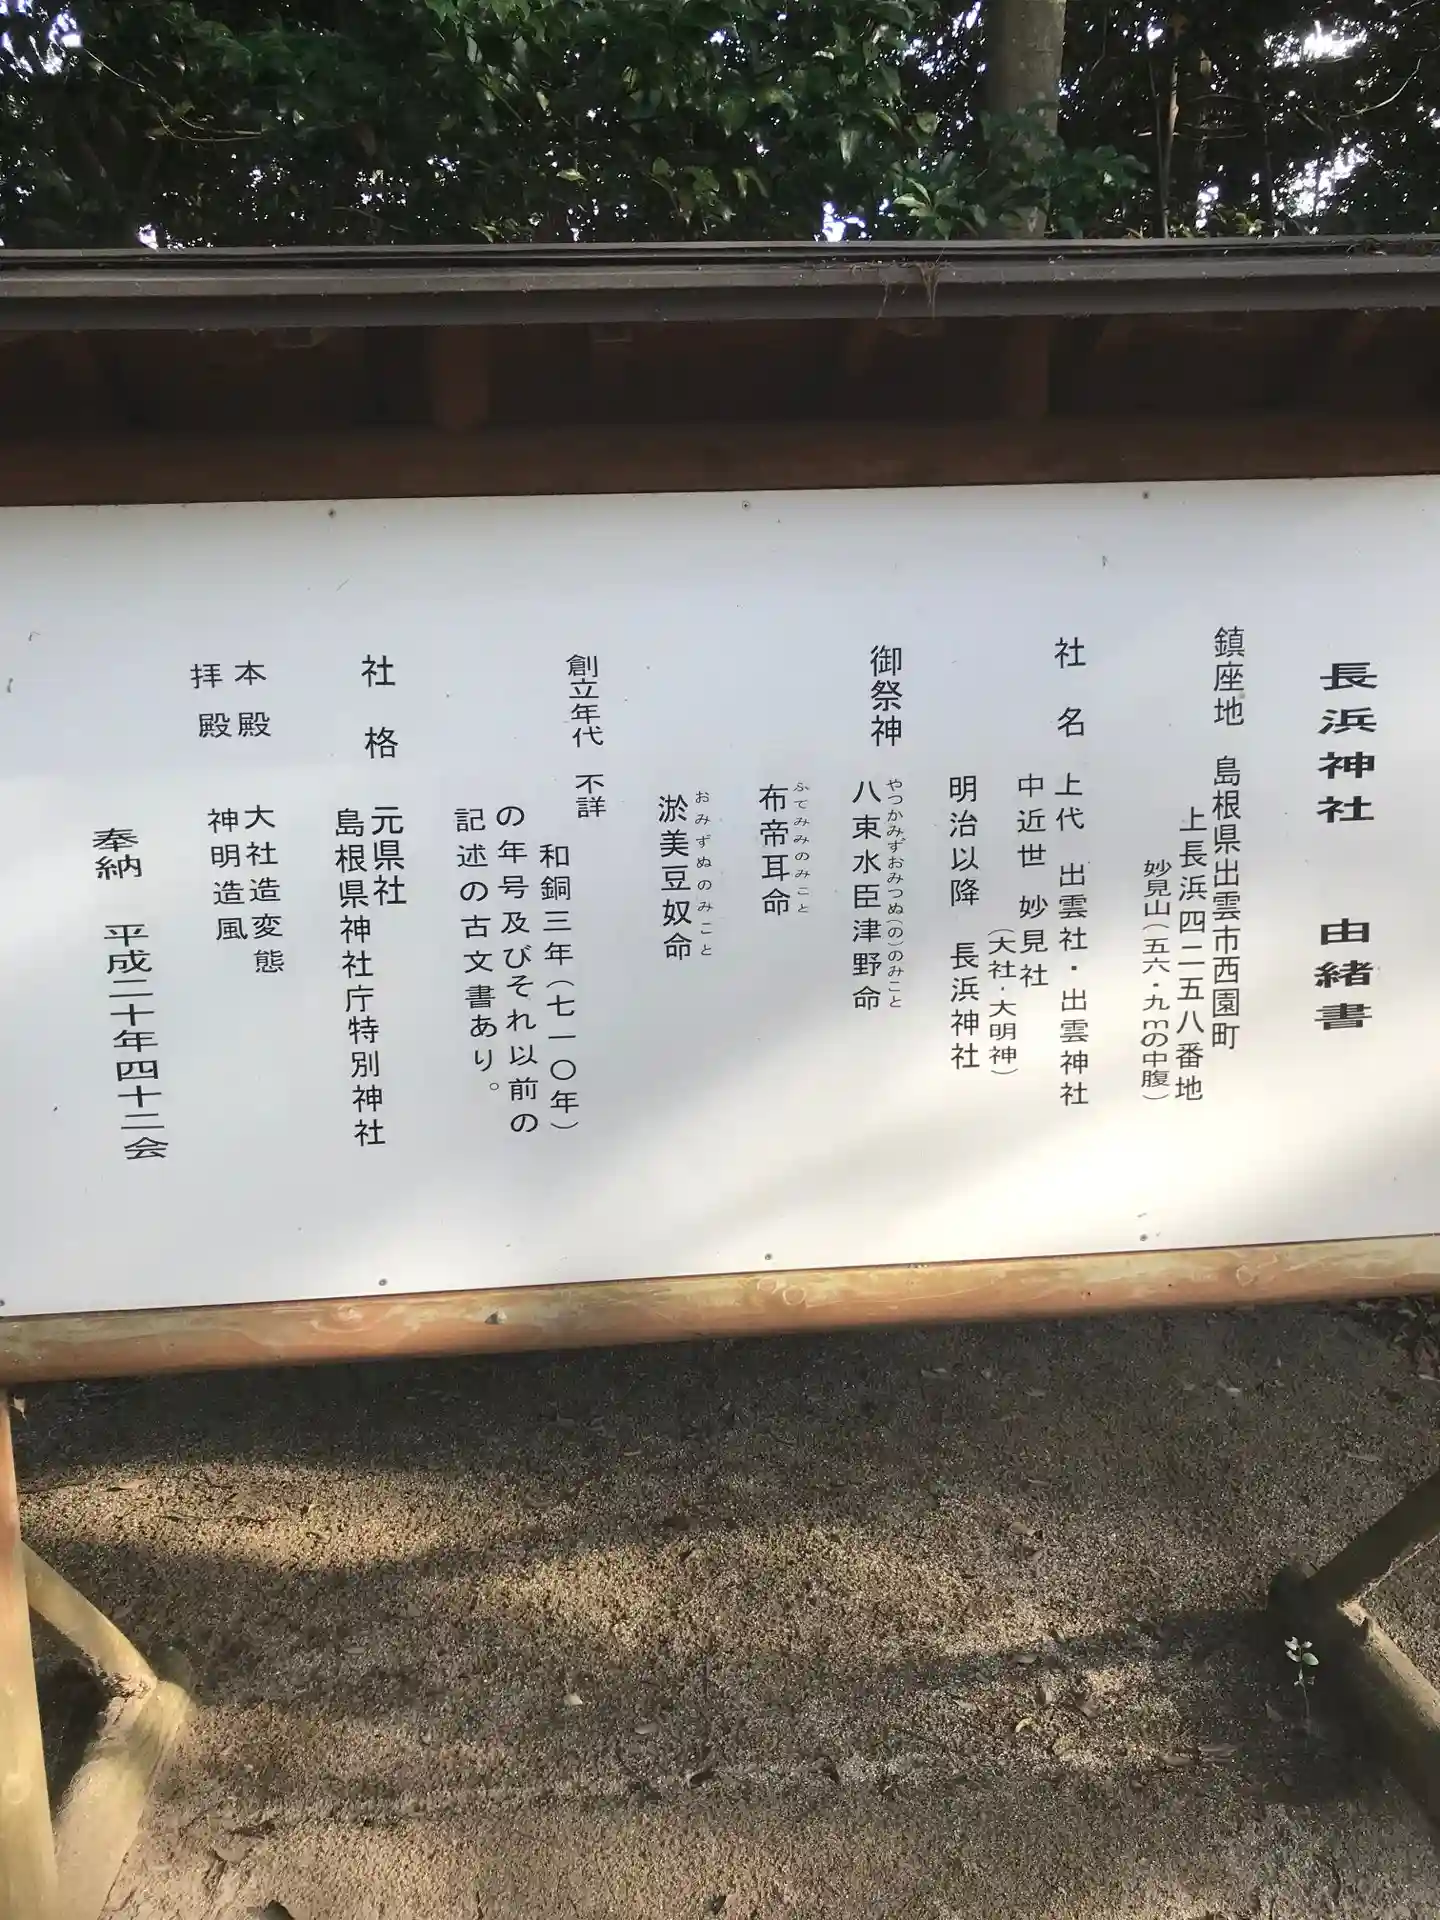 長浜神社　由緒書
鎮座地　島根県出雲市西園町
上長浜四二五八番地
妙見山（五六・九ｍの中腹）
社名　上代　出雲社・出雲神社
中近世　妙見社
（大社・大明神）
明治以降　長浜神社
御祭神　八束水臣津野命
やつかみずおみつぬ(の)のみこと
布帝耳命
ふてみみのみこと
淤美豆奴命
おみずぬのみこと
創立年代　不詳
和銅三年（七一〇年）
の年号及びそれ以前の
記述の古文書あり。
社格　元県社
島根県神社庁特別神社
本殿　大社造変態
拝殿　神明造風
奉納　平成二十年四十二会